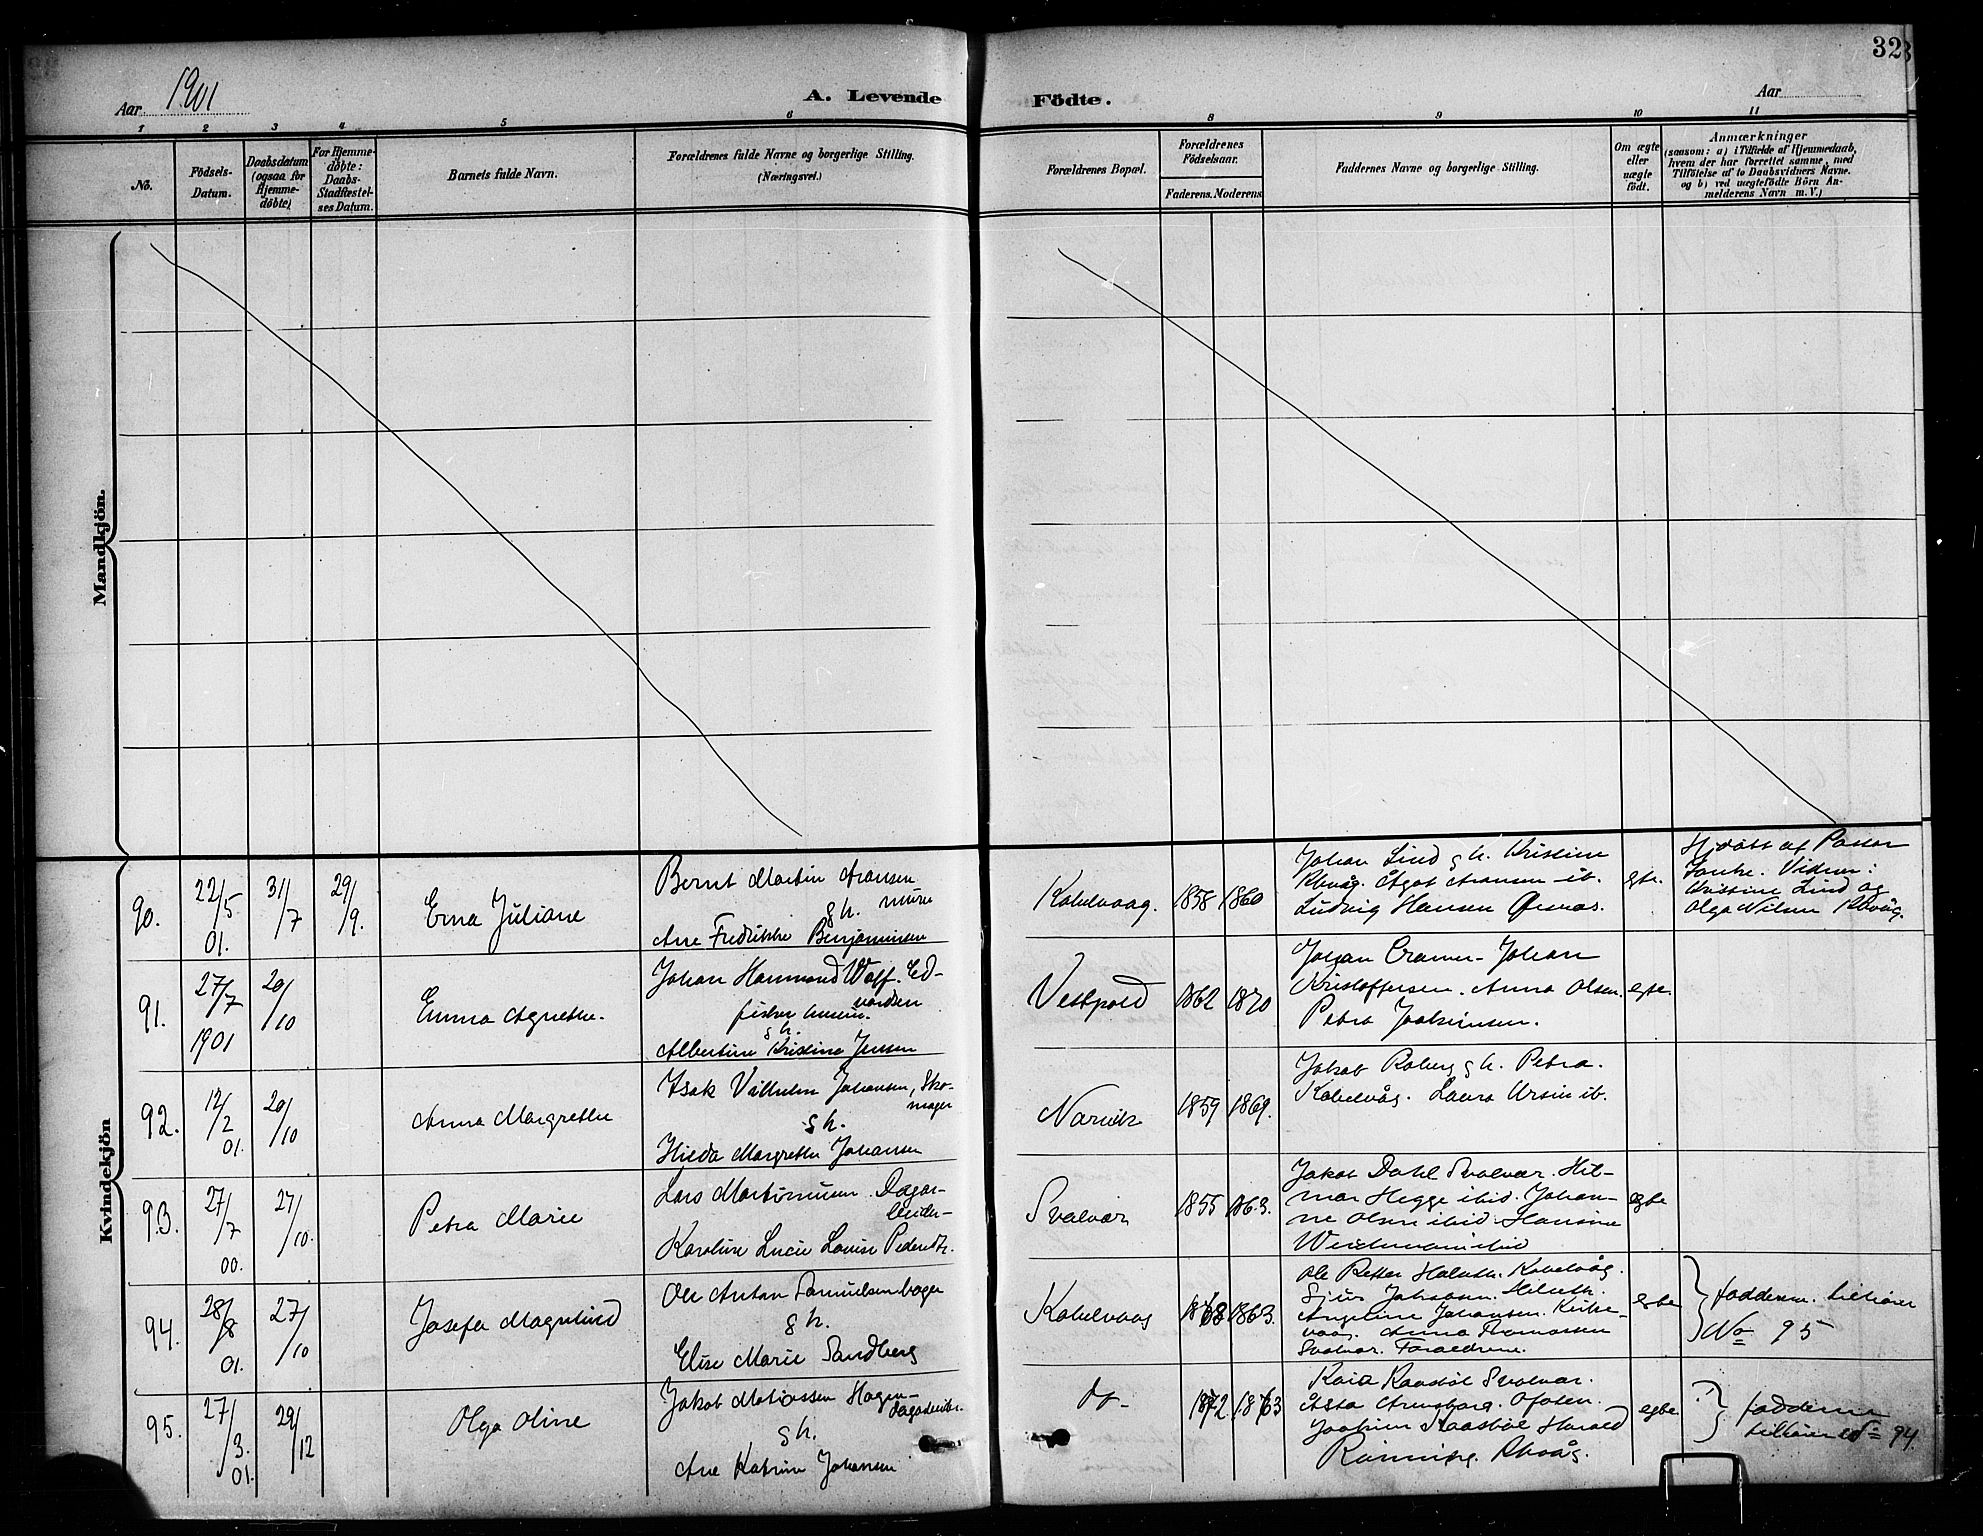 32
Aar 1901
A. Levende
Födte.
Aar
1 2 3 4 5 6 8 9 10 11
No.
Födsels-
Datum.
Daabsdatum
(ogsaa for
Hjemme-
döbte)
For Hjemme-
döbte:
Daabs-
Stadfæstel-
ses Datum.
Barnets fulde Navn.
Forældrenes fulde Navne og borgerlige Stilling.
(Næringsvei.)
Forældrenes Bopæl.
Forældrenes
Födselsaar.
Faderens. Moderens
Faddernes Navne og borgerlige Stilling.
Om ægte
eller
uægte
födt.
Anmærkninger
(saasom: a) i Tilfælde af Hjemmedaab,
hvem der har forrettet samme, med
Tilföielse af to Daabsvidners Navne.
og b) ved uægtefödte Börn An-
melderens Navn m.V.)
Mandkjön.
Kvindekjön
90.
22/5
01.
31/7
29/9.
Erna Juliane
Bernt Martin Aronsen
gh. murer
Ane Fredrikke Benjaminsen
Kabelvaag.
1858 1860
Johan Lind gh. Kristine
Kbvåg. Ågot Aronsen ib.
Ludvig Hansen Ørsnes.
egte.
Hjdöbt af Pastor
Vidner:
Kristine Lind og
Olga Nilsen Kbvåg.
91.
27/7
1901
20/10
Emma Agnethe.
Johan Hammond Wolf. Ed-
vardsen
fisker
gh.
Albertine Kristine Jensen
Vestpold
1862 1870
Johan Cramer. Johan
Kristoffersen. Anna Olsen.
Petra Joakimsen.
egte.
92.
12/2
01.
20/10
Anna Margrethe
Isak Vilhelm Johansen, Sko-
mager
gh.
Hilda Margrethe Johansen
Narvik
1859 1869.
Jakob Roberg gh. Petra.
Kabelvåg. Laura Ursin ib.
93.
27/7
00.
27/10.
Petra Marie
Lars Martinussen. Dagar-
beider
Karoline Lucie Louise Pedersdtr.
Svolvær
1855 1863.
Jakob Dahl Svolvær. Hil-
mar Hegge ibid. Johan-
ne Olsen ibid. Hansine
ibid
egte
94.
28/8
01.
27/10
Josefa Magnhild
Ole Anton Samuelsen bager
gh.
Elise Marie Sandberg
Kabelvaag
1868 1863.
Ole Petter Kabelvåg.
Angeline Johansen. Kirke-
vaag. Anna Thomassen
Svolvær. Forældrene.
egte
fadderne tilhörer
No 95
95.
27/3.
01.
29/12
Olga Oline
Jakob Matiassen Hagen-
dagarbeider.
gh.
Ane Katrine Johansen
do-
1872 1863
Kaia Raasböl Svolvær.
Åsta Arnsborg. Ofoten.
Joakim Raasböl Harald
Rönning. Kbvåg.
egte
fadderne
tilhörer No 94.